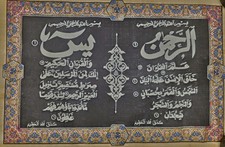 بسم الله الرحمن الرحيم
الرحمن
علم القرآن
خلق الإنسان علمه البيان
الشمس والقمر بحسبان
والنجم والشجر
يسجدان
صدق الله العظيم
بسم الله الرحمن الرحيم
يس
والقرآن الحكيم
إنك لمن المرسلين على
صراط مستقيم تنزيل
ما أنذر آباؤهم فهم
غافلون
صدق الله العظيم